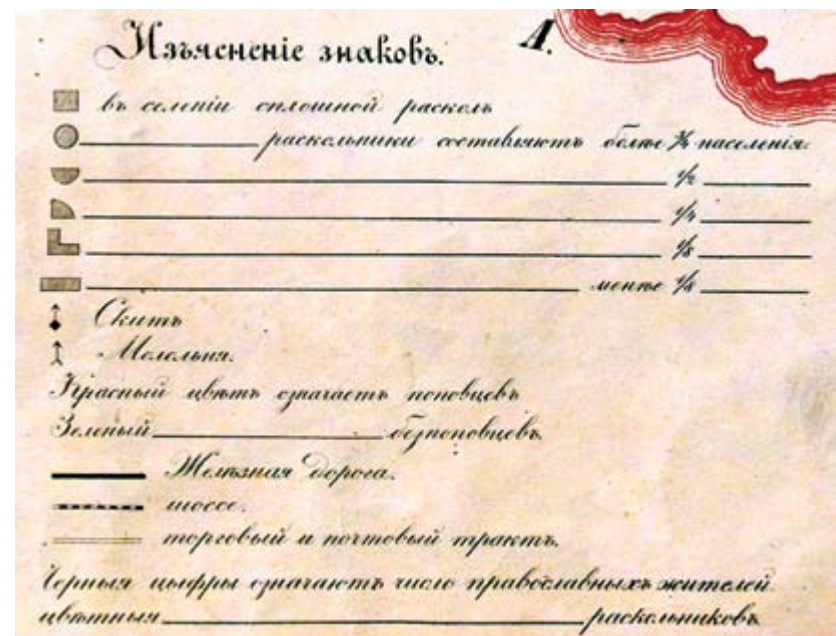 Изъясненіе знаковъ.
А.
въ селеніи сплошной расколъ
раскольники составляютъ болѣе ¾ населенія.
½
¼
⅛
менѣе ⅛
Скитъ
Молельня.
Красный цвѣтъ означаетъ поповцевъ
Зеленый безпоповцевъ.
Желѣзная дорога.
шоссе.
торговый и почтовый трактъ.
Черныя цыфры означаютъ число православныхъ жителей.
цвѣтныя раскольниковъ